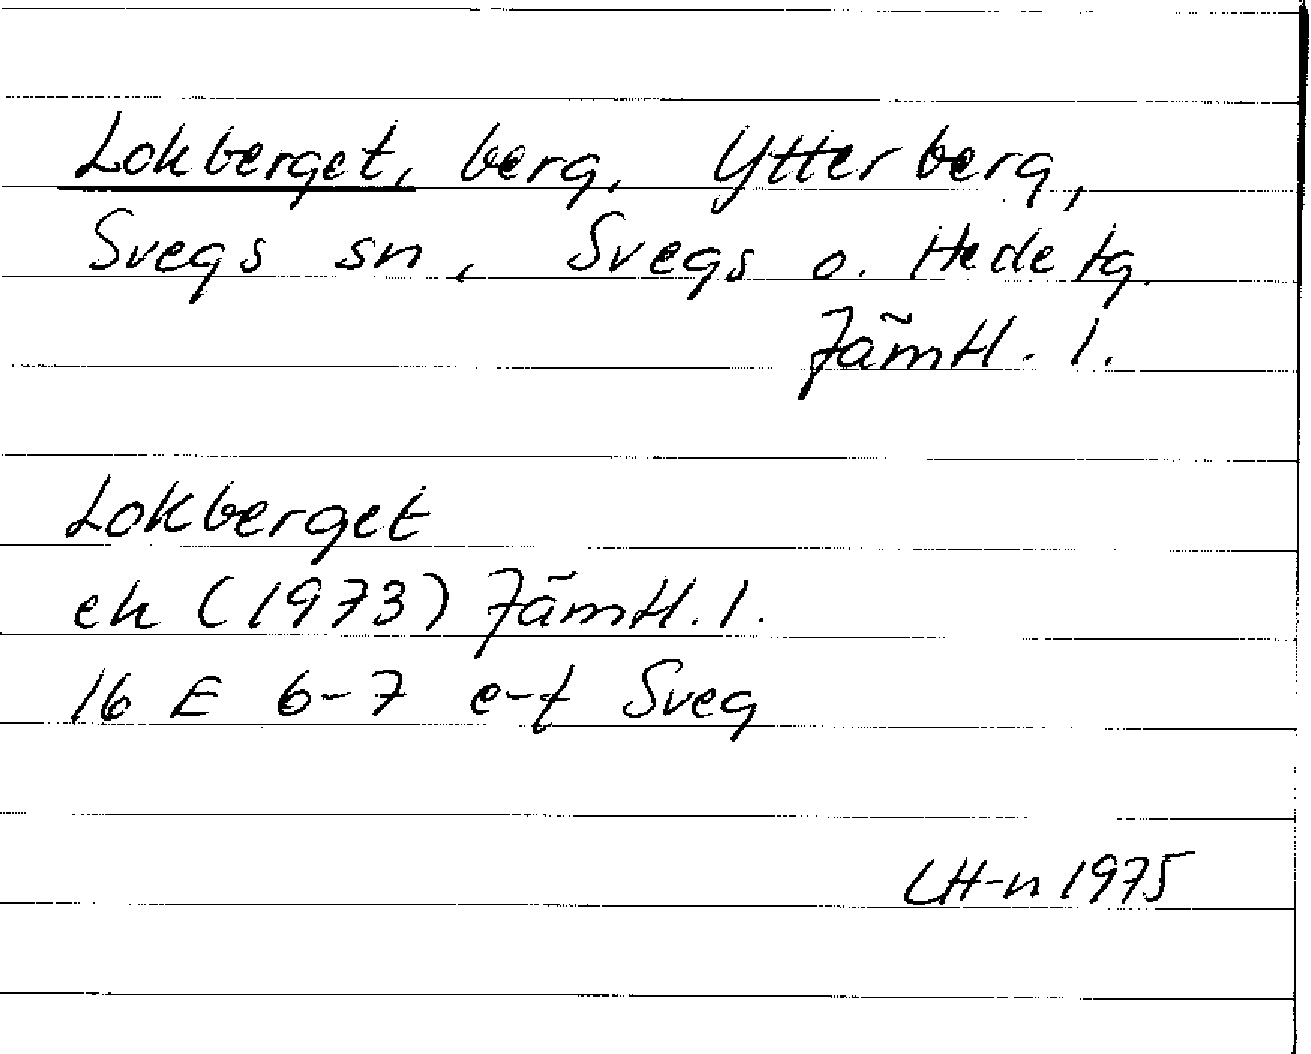 Lokberget, berg, Ytterberg,
Svegs sn, Svegs o. Hede tg.
Jämtl. l.
Lokberget
ek (1973) Jämtl. l.
16 E 6-7 e-f Sveg
LH-n 1975